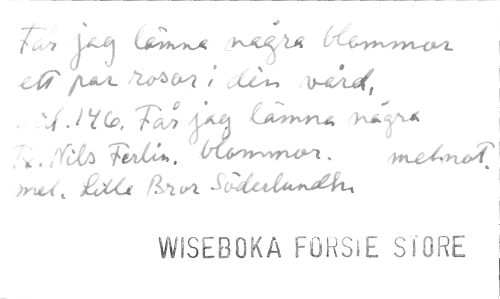 Får jag lämna några blommor
ett par rosor i din vård,
sid. 146. Får jag lämna några
Tx. Nils Ferlin. blommor. melnot.
mel. Lille Bror Söderlundh.
WISEBOKA FORSTE STORE